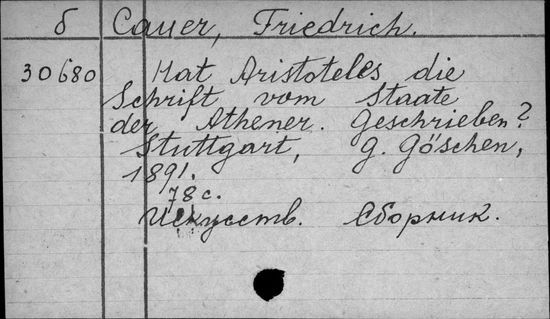 б Cauer, Friedrich.
30680 Hat Aristoteles die
Schrift vom Staate
der Athener. Geschrieben?
Stuttgart, G. Göschen,
1891.
78 с.
Искусств. Сборник.